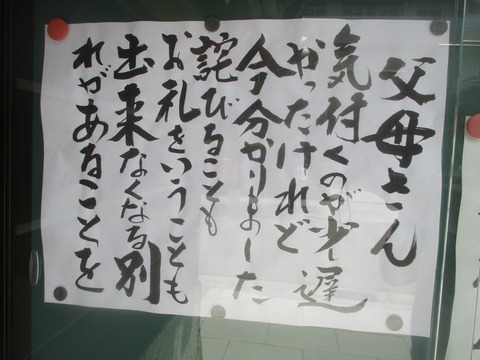 父母さん
気付くのが少し遅
かったけれど
今分かりました
詫びることも
お礼をいうことも
出来なくなる別
れがあることを